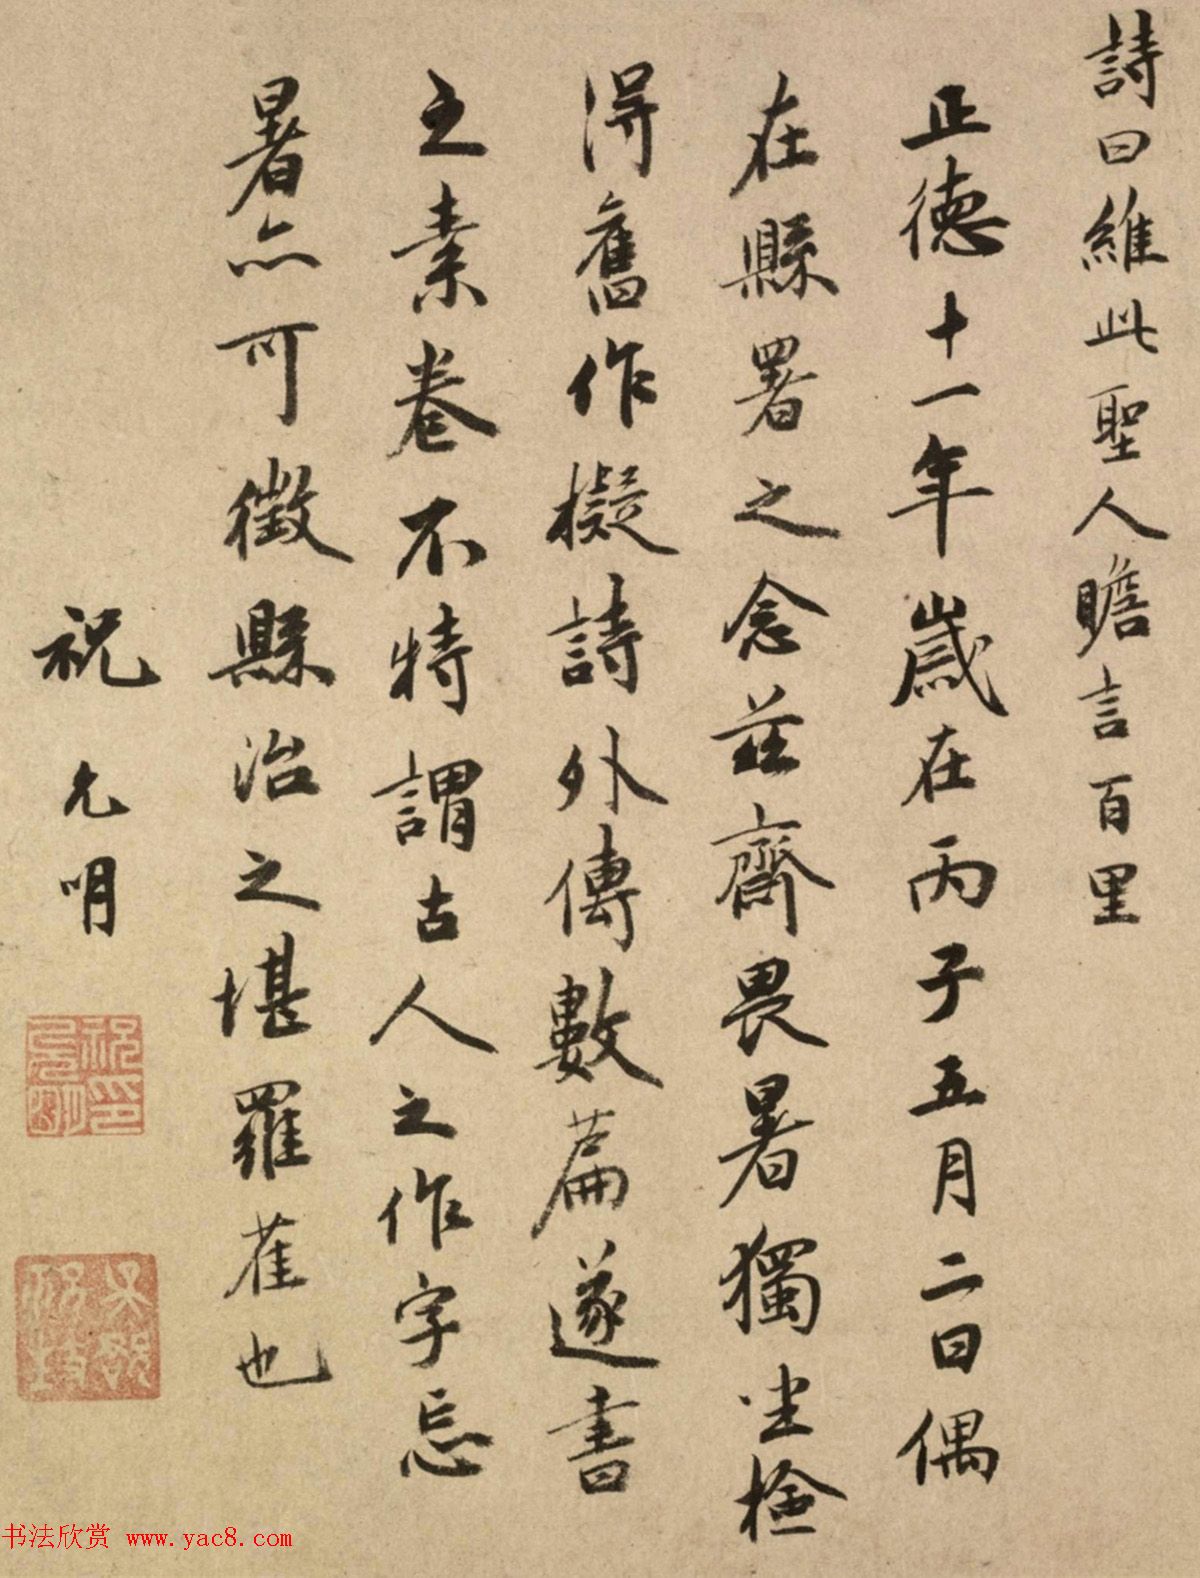 詩曰維此聖人瞻言百里
正德十一年歲在丙子五月二日偶
在縣署之念茲齋畏暑獨坐檢
得舊作擬詩外傳數篇遂書
之素卷不特謂古人之作字忘
暑亦可徵縣治之堪羅雀也
祝允明
祝允明印
书法欣赏 www.yac8.com